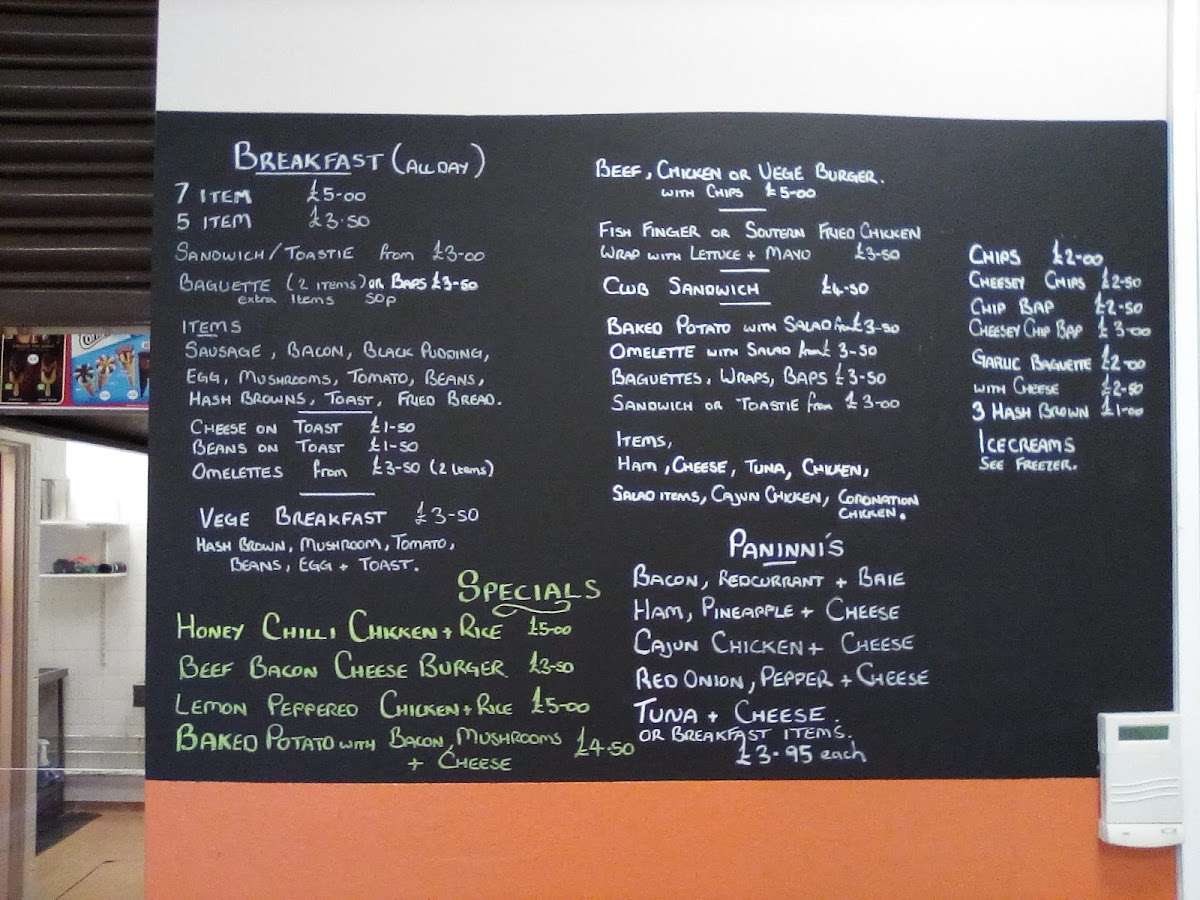 BREAKFAST (ALL DAY)
7 ITEM £5-00
5 ITEM £3-50
SANDWICH/TOASTIE from £3-00
BAGUETTE (2 ITEMS) OR BAPS £3-50
extra Items 50p
ITEMS
SAUSAGE, BACON, BLACK PUDDING,
EGG, MUSHROOMS, TOMATO, BEANS,
HASH BROWNS, TOAST, FRIED BREAD.
CHEESE ON TOAST £1-50
BEANS ON TOAST £1-50
OMELETTES from £3-50 (2 Items)
VEGE BREAKFAST £3-50
HASH BROWN, MUSHROOM, TOMATO,
BEANS, EGG + TOAST.
SPECIALS
HONEY CHILLI CHICKEN + RICE £5-00
BEEF BACON CHEESE BURGER £3-50
LEMON PEPPERED CHICKEN + RICE £5-00
BAKED POTATO WITH BACON, MUSHROOMS £4-50
+ CHEESE
BEEF, CHICKEN OR VEGE BURGER.
WITH CHIPS £5-00
FISH FINGER OR SOUTERN FRIED CHICKEN
WRAP WITH LETTUCE + MAYO £3-50
CLUB SANDWICH £4-50
BAKED POTATO WITH SALAD from £3-50
OMELETTE WITH SALAD from £3-50
BAGUETTES, WRAPS, BAPS £3-50
SANDWICH OR TOASTIE from £3-00
ITEMS,
HAM, CHEESE, TUNA, CHICKEN,
SALAD ITEMS, CAJUN CHICKEN, CORONATION
CHICKEN.
PANINNI'S
BACON, REDCURRANT + BRIE
HAM, PINEAPPLE + CHEESE
CAJUN CHICKEN + CHEESE
RED ONION, PEPPER + CHEESE
TUNA + CHEESE.
OR BREAKFAST ITEMS.
£3-95 each
CHIPS £2-00
CHEESEY CHIPS £2-50
CHIP BAP £2-50
CHEESEY CHIP BAP £3-00
GARLIC BAGUETTE £2-00
WITH CHEESE £2-50
3 HASH BROWN £1-00
ICECREAMS
SEE FREEZER.